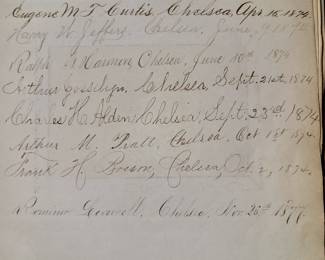 Eugene M. T. Curtis, Chelsea, Apr 15, 1874.
Harry W. Jeffers, Chelsea, June,
Ralph Chelsea, June 10th 1874
Arthur Gosselyn, Chelsea, Sept. 21st, 1874
Charles H. Alden, Chelsea, Sept. 23rd, 1874
Arthur M. Pratt, Chelsea, Oct 1st 1874.
Frank H. Chelsea, Oct. 2, 1874.
Chelsea, Nov. 26th 1877.